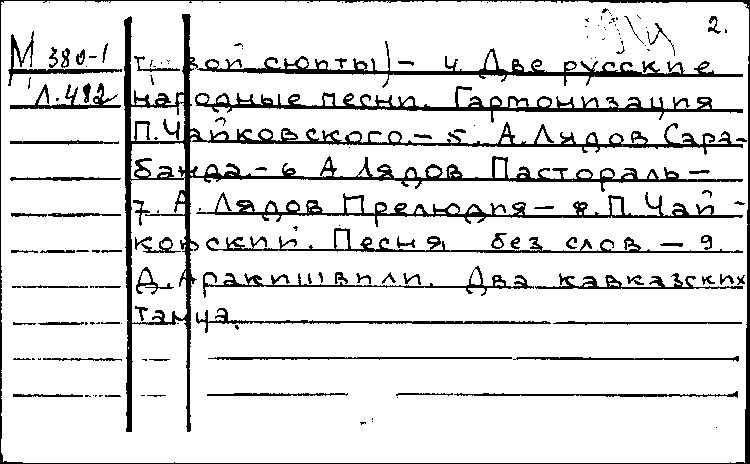 2.
М 380-1 тр вой сюиты) - 4. Две русские
Л.482 народные песни. Гармонизация
П. Чайковского. - 5. А. Лядов Сара-
банда. - 6 А Лядов Пастораль -
7. А. Лядов Прелюдия - 8. П. Чай-
ковский. Песня без слов. - 9.
Д. Аракишвили. Два кавказских
танца.